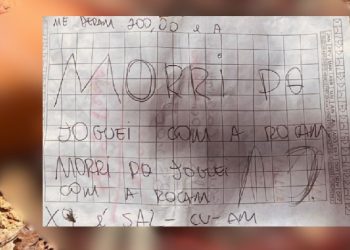 ME DERAM 200,00 E A
MORRI DO
JOGUEI COM A ROCAM
MORRI DO JOGUEI
COM A ROCAM